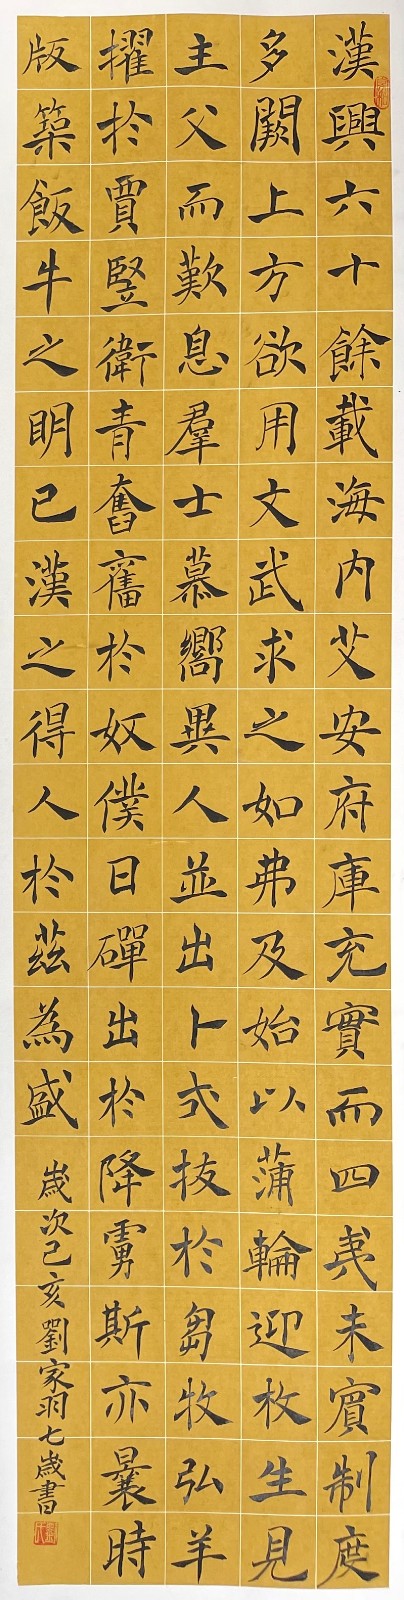 漢興六十餘載海内艾安府庫充實而四夷未賓制度
多闕上方欲用文武求之如弗及始以蒲輪迎枚生見
主父而歎息羣士慕嚮異人並出卜式拔於芻牧弘羊
擢於賈豎衛青奮奮於奴僕日磾出於降虜斯亦曩時
版築飯牛之明已漢之得人於茲為盛
歲次己亥劉家羽七歲書